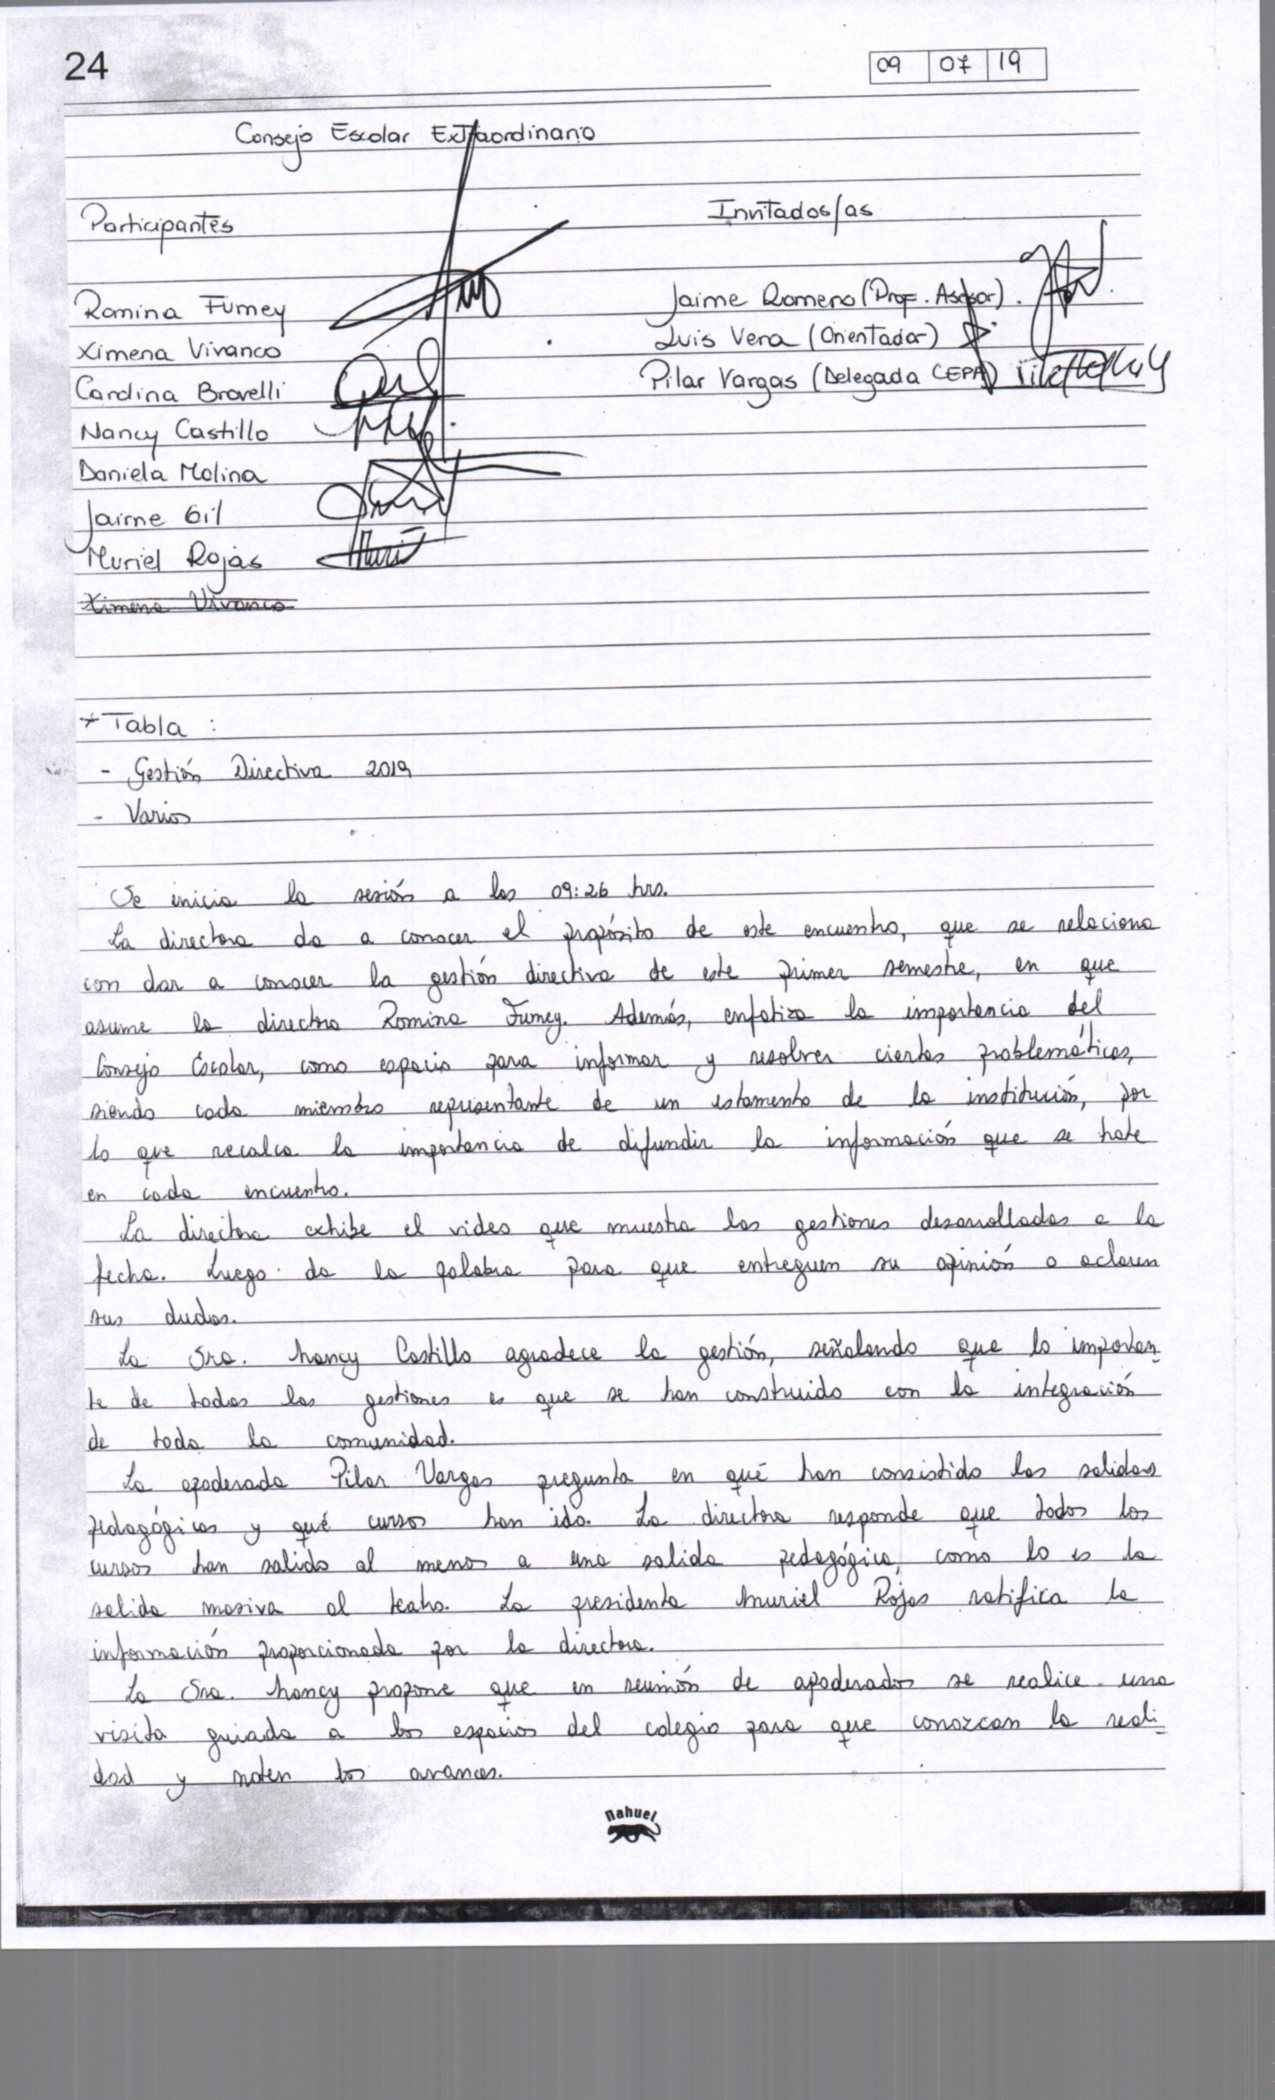 24
09 07 19
Consejo Escolar Extraordinario
Participantes
Invitados/as
Romina Fumey
Jaime Romero (Prof. Asesor).
Ximena Vivanco
Luis Vera (Orientador)
Carolina Bravelli
Pilar Vargas (Delegada CEPA)
Nancy Castillo
Daniela Molina
Jaime Gil
Muriel Rojas
Ximena Vivanco
* Tabla :
- Gestión Directiva 2019
- Varios
Se inicia la sesión a las 09:26 hrs.
La directora da a conocer el propósito de este encuentro, que se relaciona
con dar a conocer la gestión directiva de este primer semestre, en que
asume la directora Romina Fumey. Además, enfatiza la importancia del
Consejo Escolar, como espacio para informar y resolver ciertas problemáticas,
siendo cada miembro representante de un estamento de la institución, por
lo que recalca la importancia de difundir la información que se trate
en cada encuentro.
La directora exhibe el video que muestra las gestiones desarrolladas a la
fecha. Luego da la palabra para que entreguen su opinión o aclaren
sus dudas.
La Sra. Nancy Castillo agradece la gestión, señalando que lo importan-
te de todas las gestiones es que se han construido con la integración
de toda la comunidad.
La apoderada Pilar Vargas pregunta en qué han consistido las salidas
pedagógicas y qué cursos han ido. La directora responde que todos los
cursos han salido al menos a una salida pedagógica, como lo es la
salida masiva al teatro. La presidenta Muriel Rojas ratifica la
información proporcionada por la directora.
La Sra. Nancy propone que en reunión de apoderados se realice una
visita guiada a los espacios del colegio para que conozcan la reali-
dad y noten los avances.
nahuel